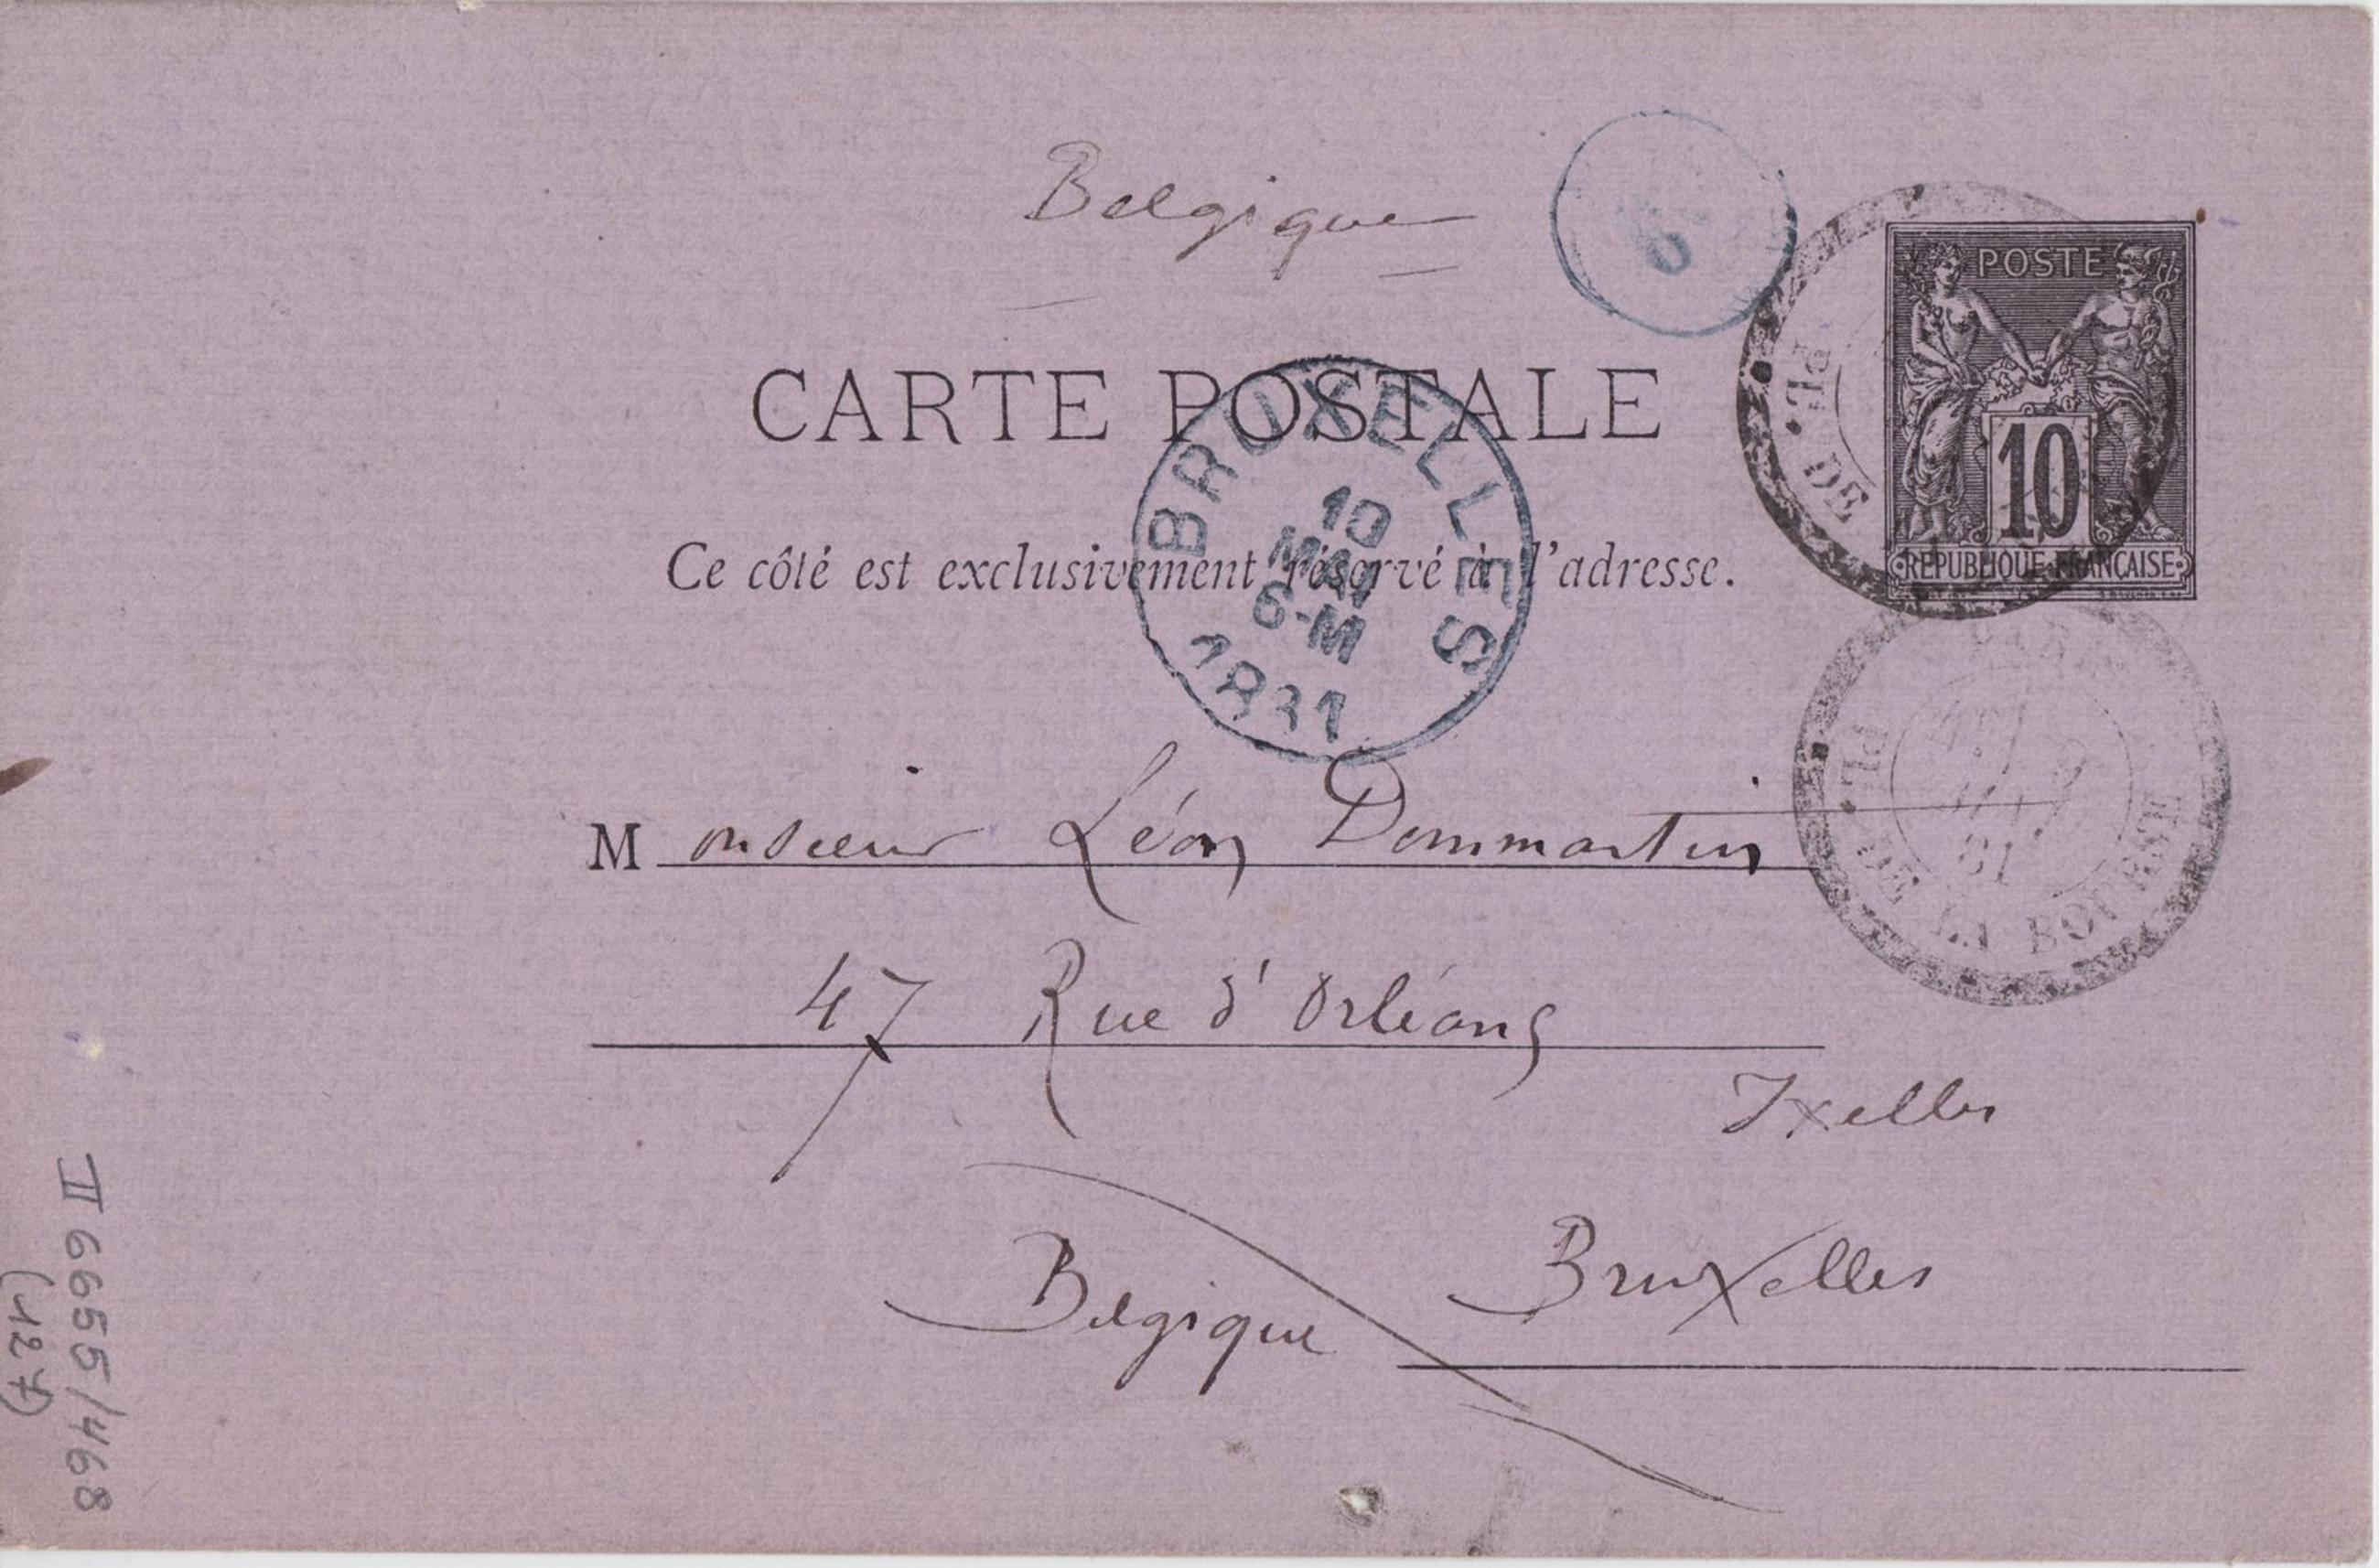 Belgique
6
POSTE
10
REPUBLIQUE FRANÇAISE
PL. DE
CARTE POSTALE
BRUXELLES
10
MAI
6-M
1881
Ce côté est exclusivement réservé à l'adresse.
PL. DE LA BOURSE
81
Monsieur Léon Dommartin
47 Rue d'Orléans
Ixelles
Bruxelles
Belgique
II 6655/468
(127)